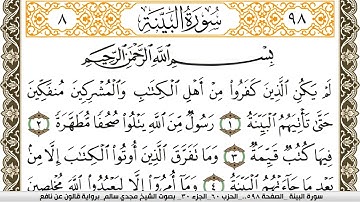 ٩٨ سُورَةُ الْبَيِّنَةِ ٨
بِسْمِ اللَّهِ الرَّحْمَٰنِ الرَّحِيمِ
لَمْ يَكُنِ الَّذِينَ كَفَرُوا مِنْ أَهْلِ الْكِتَابِ وَالْمُشْرِكِينَ مُنفَكِّينَ
حَتَّىٰ تَأْتِيَهُمُ الْبَيِّنَةُ ١ رَسُولٌ مِّنَ اللَّهِ يَتْلُوا صُحُفًا مُّطَهَّرَةً ٢
فِيهَا كُتُبٌ قَيِّمَةٌ ٣ وَمَا تَفَرَّقَ الَّذِينَ أُوتُوا الْكِتَابَ إِلَّا مِنۢ
بَعْدِ مَا جَاءَتْهُمُ الْبَيِّنَةُ ٤ وَمَا أُمِرُوا إِلَّا لِيَعْبُدُوا اللَّهَ مُخْلِصِينَ
سورة البينة _الصفحة ٥٩٨_ الحزب ٦٠_ الجزء ٣٠_ بصوت الشيخ مجدي سالم_ برواية قالون عن نافع